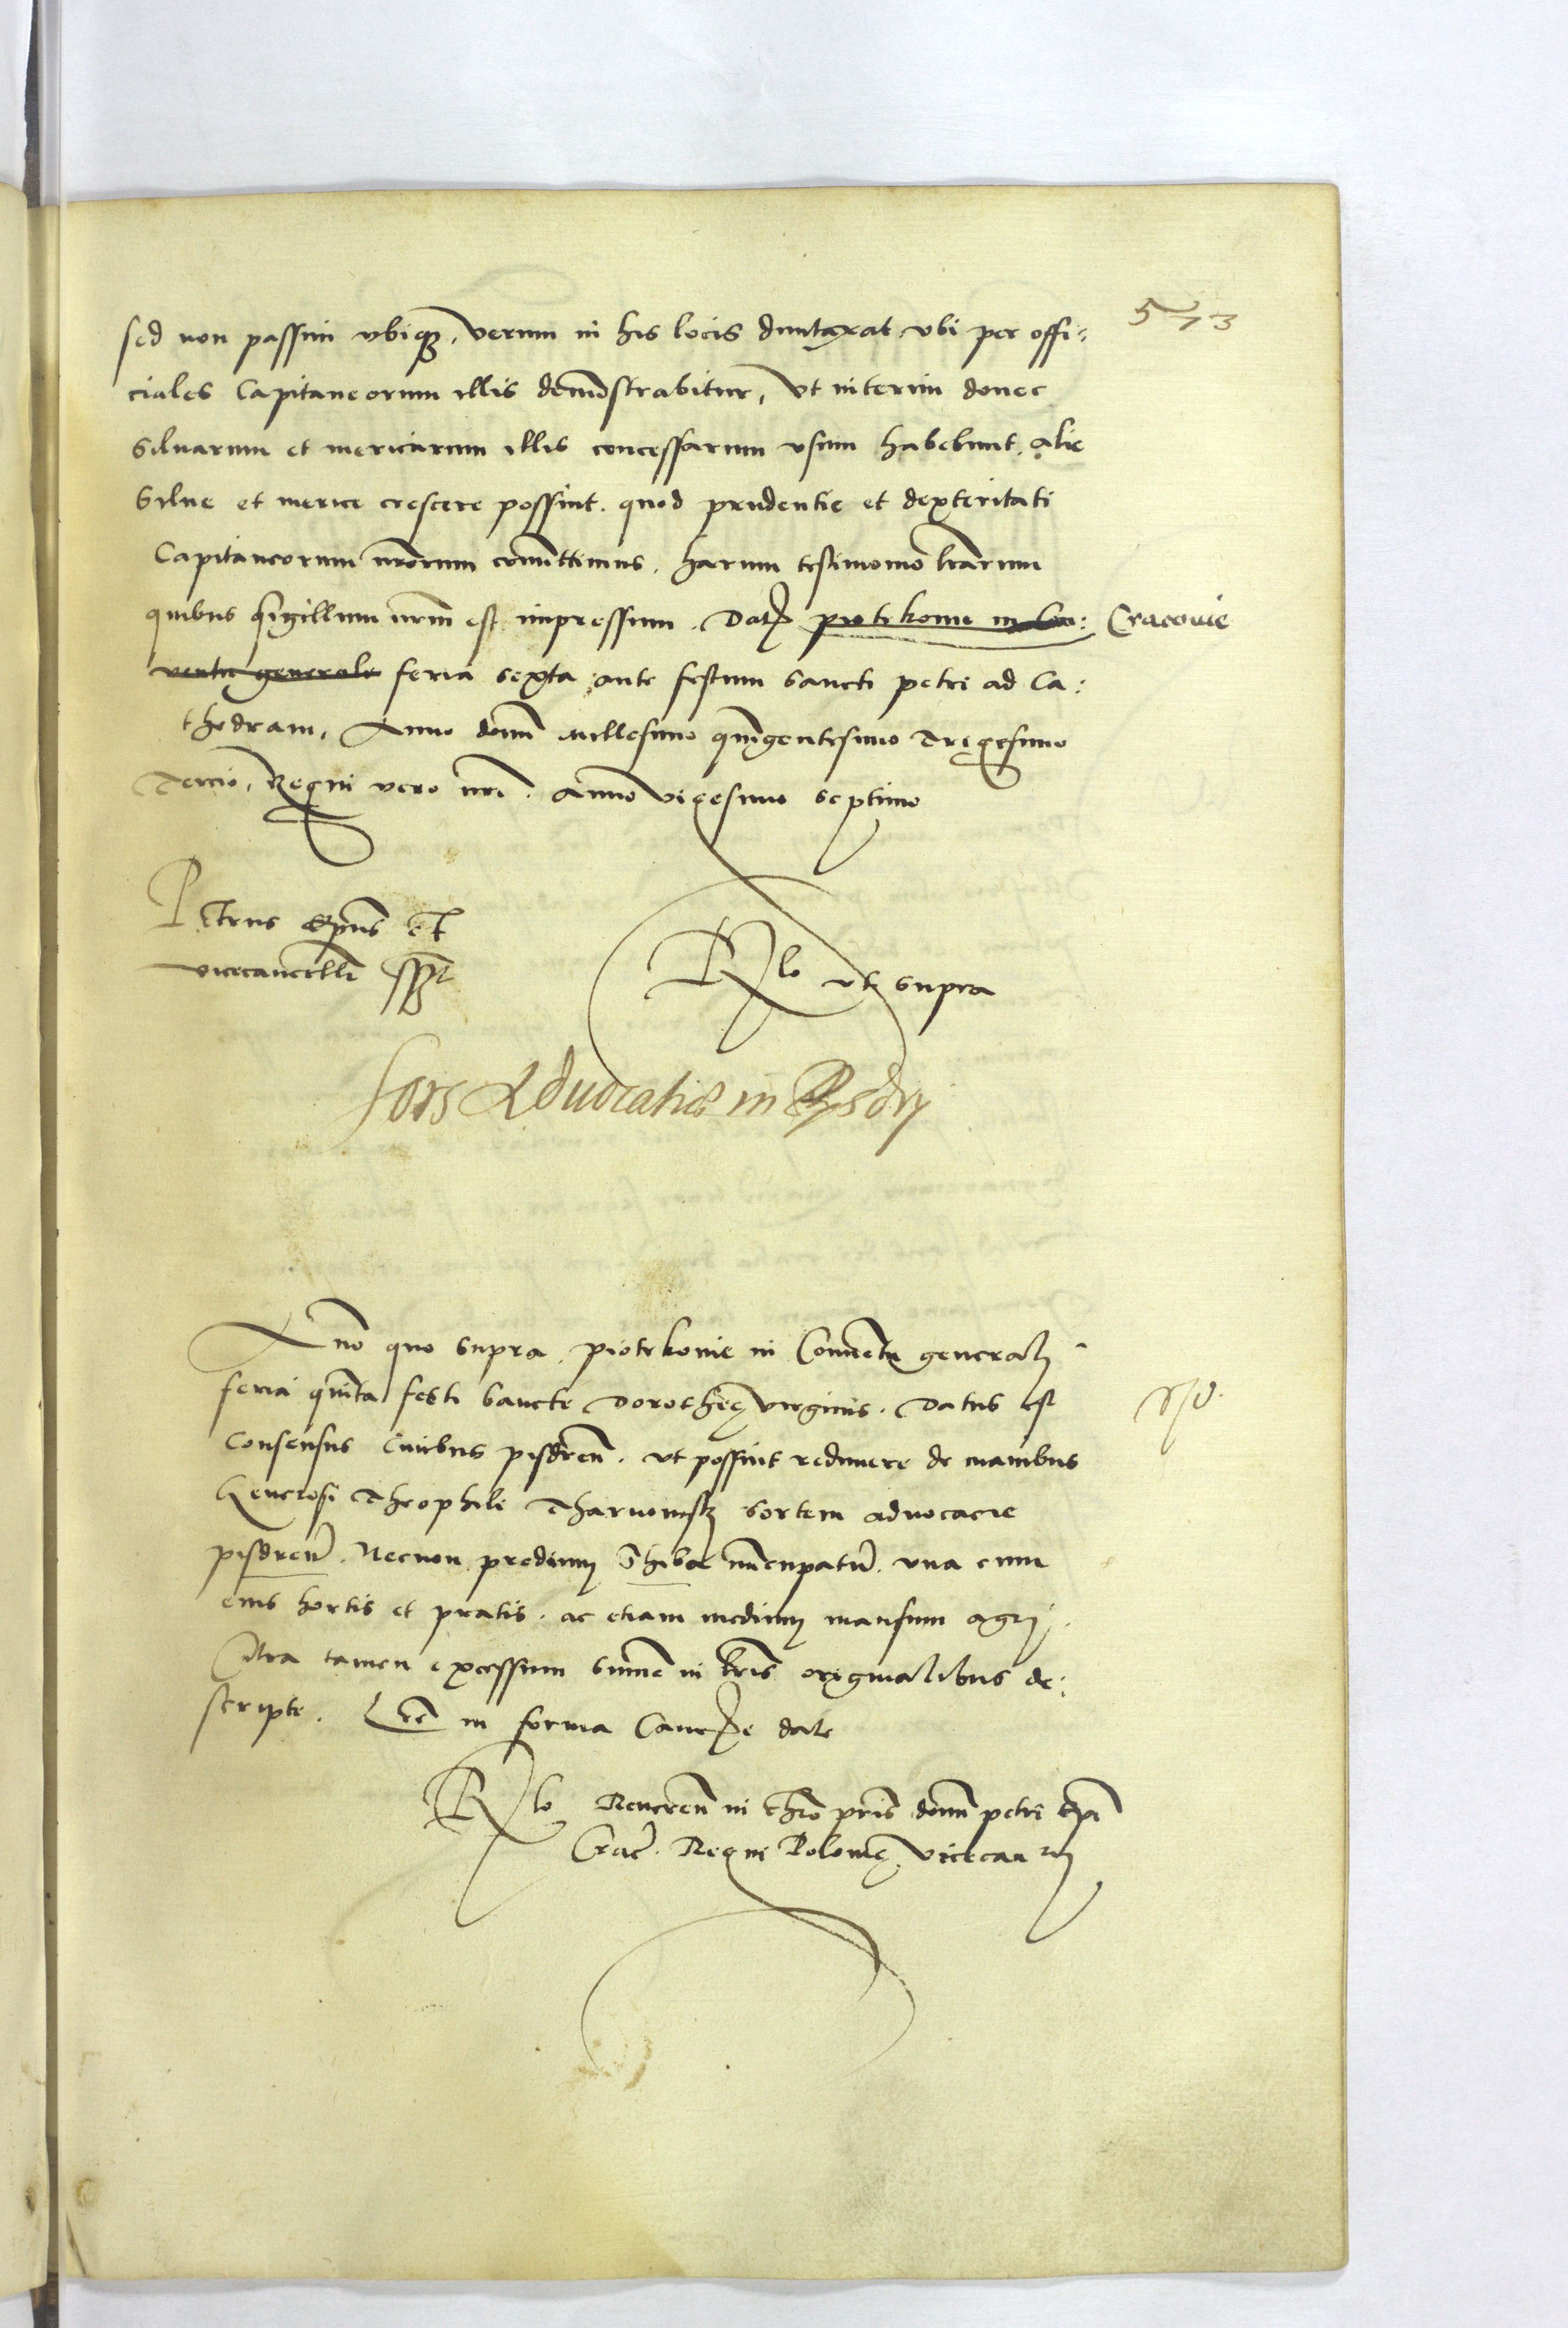 573
sed non passim vbiq3, verum in his locis duntaxat vbi per offi:
ciales Capitaneorum illis demõstrabitur, vt interim donec
siluarum et mericarum illis concessarum vsum habebunt, alie
silue et merice crescere possint. quod prudentie et dexteritati
Capitaneorum nrõrum comittimus. harum testimonio lrãrum
quibus sigillum nrm̃ est impressum. Dat̃ piotrkouie in Con: Cracouie
uentu generali feria sexta ante festum sancti petri ad Ca:
thedram, Anno domĩ millesimo quĩgentesimo Trigesimo
Tercio, Regni vero nrĩ anno vigesimo septimo
Petrus Ep̃us et
vicecancell̃ sszt
Rlo vt supra
Sors Aduocatiæ in Pysdry
Año quo supra, piotrkouie in Conuentu generali
feria quĩta festi sancte Dorotheę virginis. Datus est
Consensus Ciuibus pisdreñ. vt possint redimere de manibus
Generosi Theophili Tharnowsky sortem aduocacie
pisdreñ. Necnon predium nũcupatũ. vna cum
eius hortis et pratis. ac etiam medium mansum agri.
Citra tamen excessum sum̃e in lrĩs originalibus de:
scripte. Lrẽ in forma Canc̃e date
Rlo Reueren̄ in chrõ prĩs domĩ petri Epĩ
Crac̃. Regni Polonię, vicecan rij